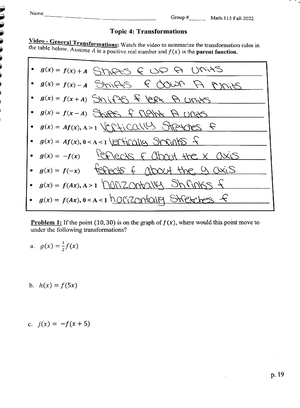 Name
Group #______ Math 115 Fall 2022
Topic 4: Transformations
Video - General Transformations: Watch the video to summarize the transformation rules in
the table below. Assume A is a positive real number and f(x) is the parent function.
• g(x) = f(x) + A Shifts f up A units
• g(x) = f(x) − A Shifts f down A units
• g(x) = f(x + A) Shifts f left A units
• g(x) = f(x − A) Shifts f right A units
• g(x) = Af(x), A > 1 Vertically Stretches f
• g(x) = Af(x), 0 < A < 1 Vertically Shrinks f
• g(x) = −f(x) reflects f about the x axis
• g(x) = f(−x) reflects f about the y axis
• g(x) = f(Ax), A > 1 horizontally Shrinks f
• g(x) = f(Ax), 0 < A < 1 horizontally Stretches f
Problem 1: If the point (10, 30) is on the graph of f(x), where would this point move to
under the following transformations?
a. g(x) = ½f(x)
b. h(x) = f(5x)
c. j(x) = −f(x + 5)
p. 19